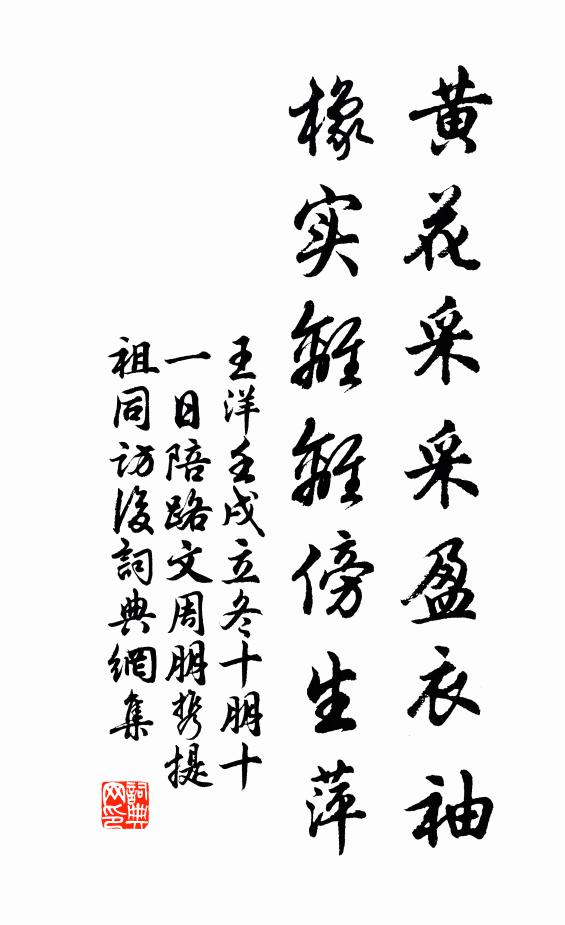 黄花采采盈衣袖
橡实離離傍生萍
王洋壬戌立冬十朋十
一日陪路文周朋携提
祖同訪後詞典網集
詞典网印